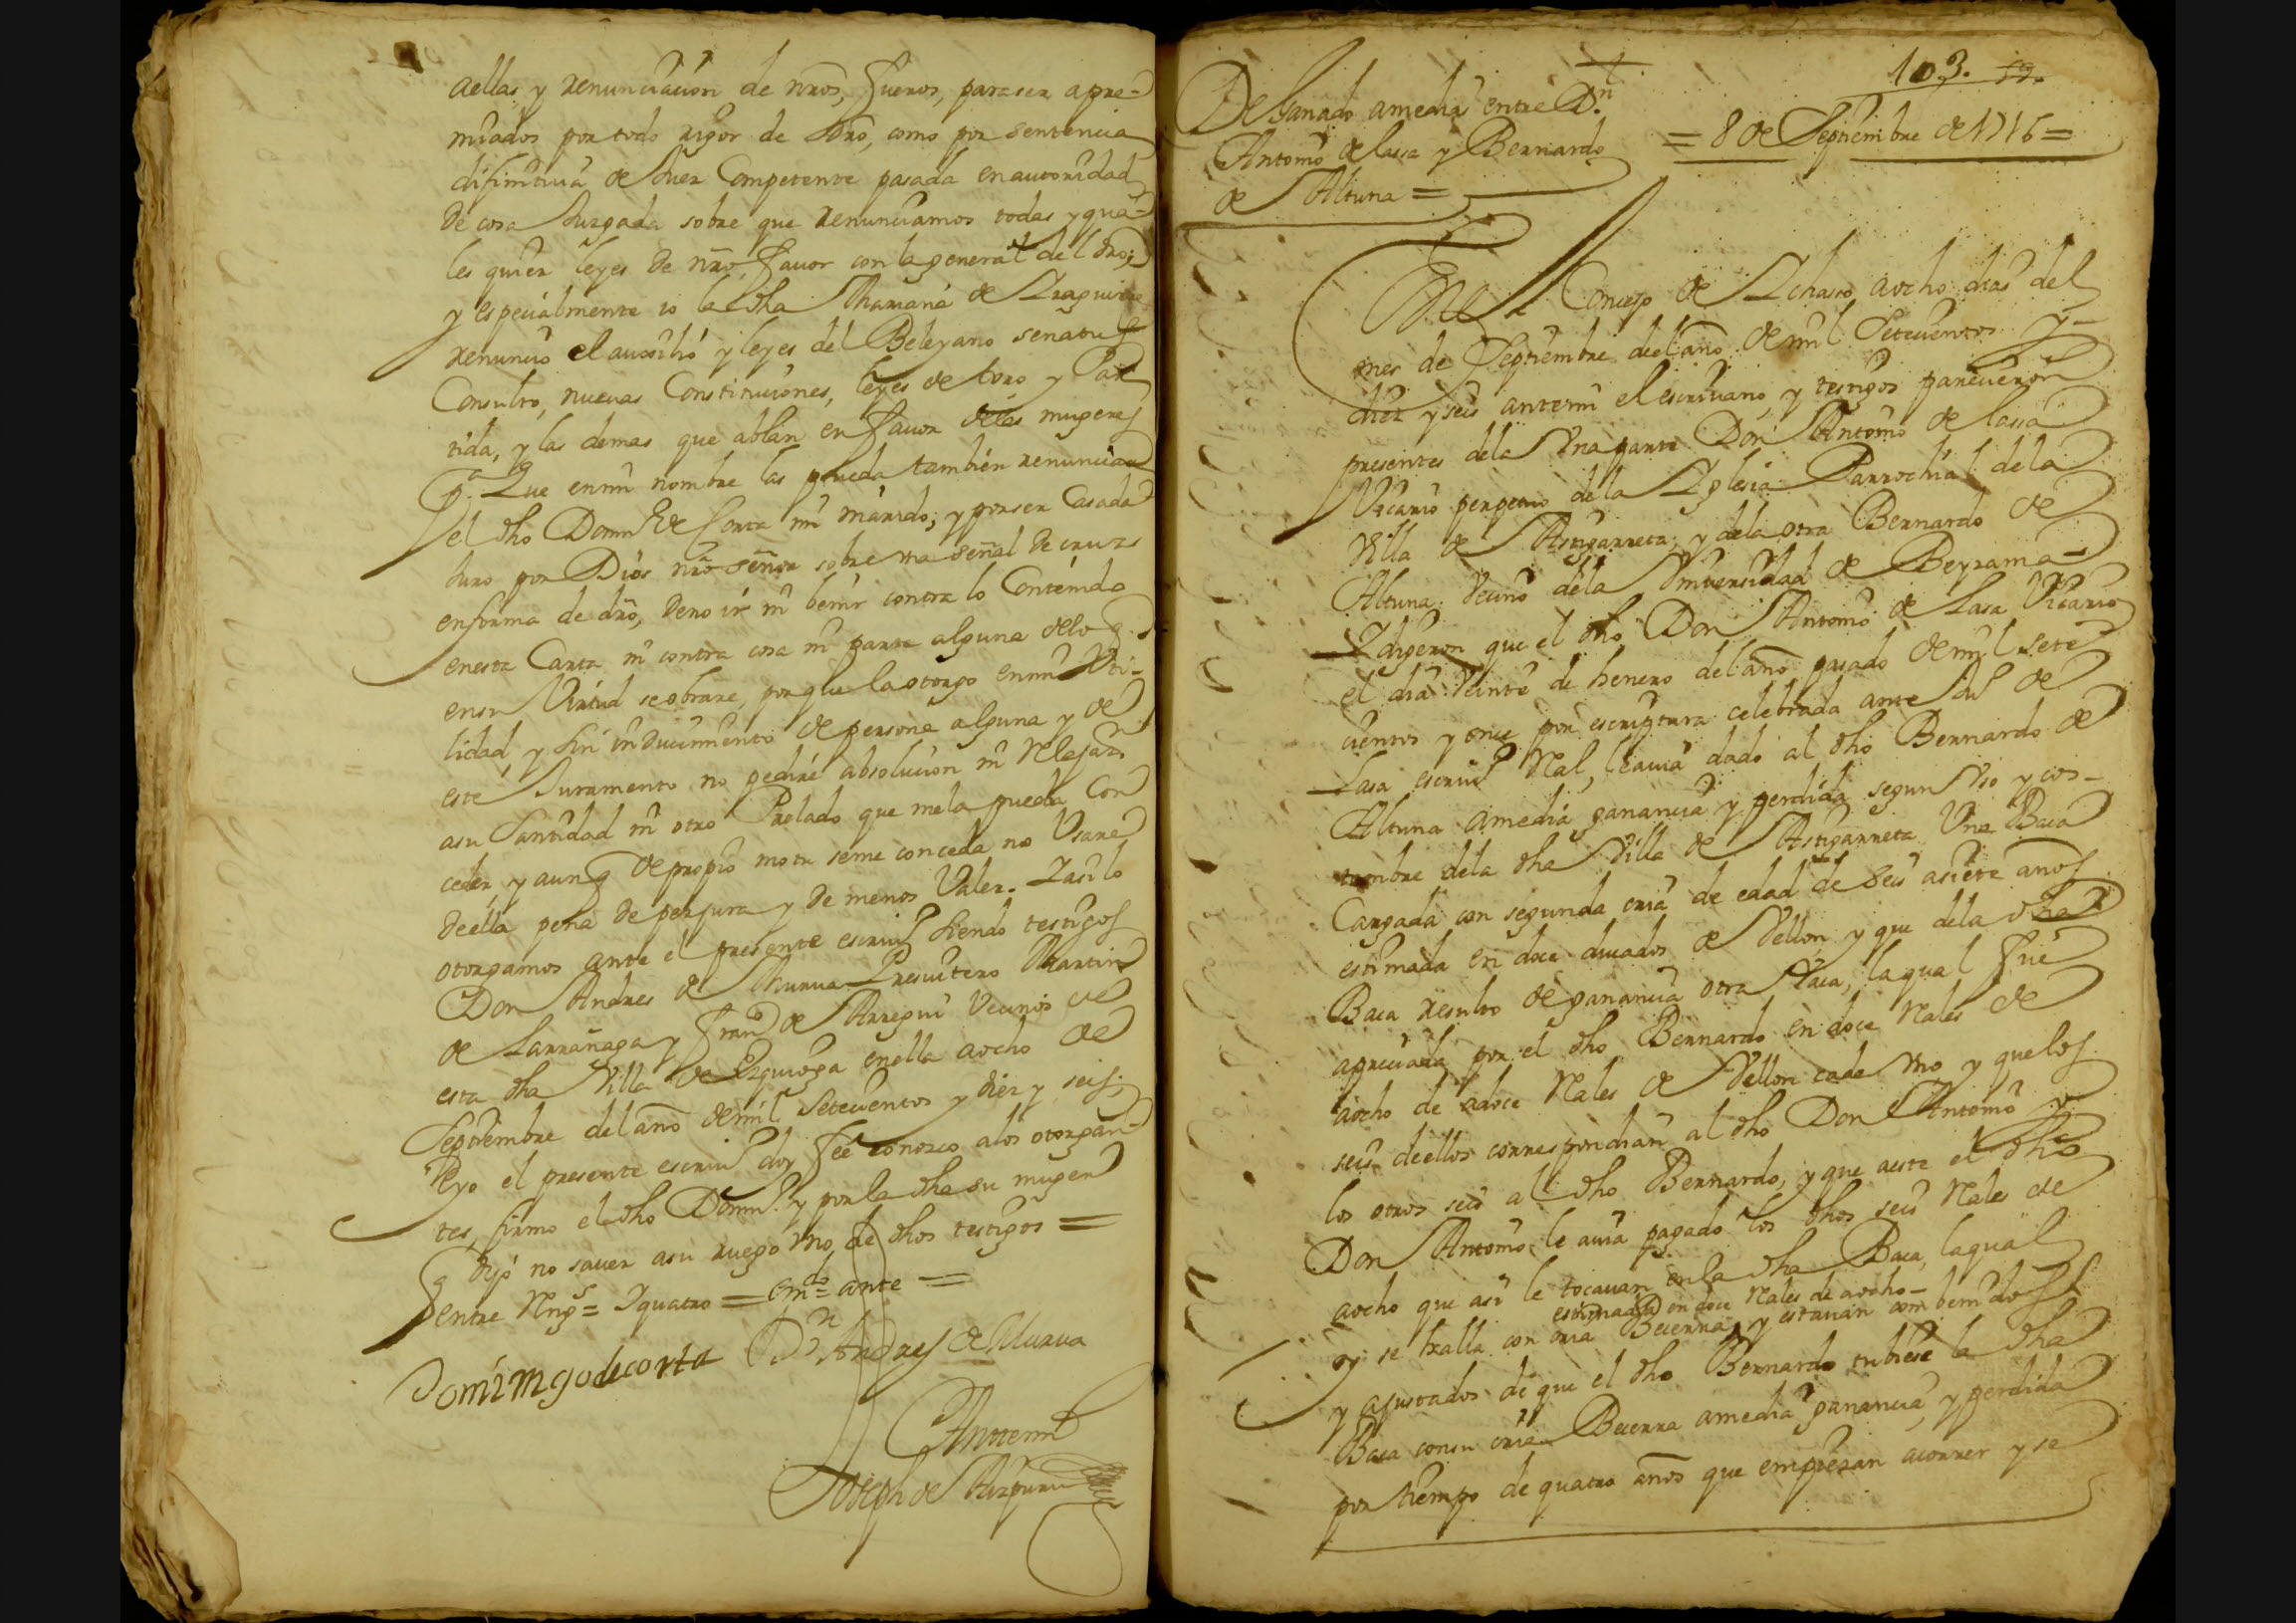 aellas, y renunciacion de nr̃os, fueros, paraser apre-
miados por todo rigor de dr̃o, como por sentencia
difinitiua de Juez Competente pasada enautoridad
de cosa Juzgada sobre que renunciamos todas y qua-
les quier leyes de nr̃o fauor con la general del dr̃o;
y espeçialmente io la dha Mariana de
renunçio el aussilio y leyes del Beleyano senatus
Consulto, nueuas Constituciones, leyes de toro y Par
tida, y las demas que ablan enfauor delas mugeres
Que enmi nombre las pueda tambien renunciar
el dho Domin.º de Corta mi marido; y porser Casada
Juro por Dios nr̃o señor sobre una señal de cruz
enforma de dr̃o, deno ir ni benir contra lo Contenido
enesta Carta ni contra cosa ni parte alguna delo q.
ensu Virtud seobrare, porque la otorgo enmi Uti-
lidad, y sin inducimiento de persona alguna y de
este Juramento no pediré absolucion ni relajaz.on
asu Santidad ni otro Prelado que mela pueda Con
ceder, y aunq de propio motu seme conceda no Usare
deella pena de perjura y de menos Valer. Y asi lo
otorgamos ante el presente escriu.º siendo testigos
Don Andres de Murua Presuitero Martin
de Larrañaga y Fran.co de Arregui Vecinos de
esta dha Villa de Ezquioga enella aocho de
Septiembre del año demil Setecientos y diez y seis;
Eyo el presente escriu.º doy feé conozco alos otorgan-
tes, firmo el dho Domin.º y por la dha su muger
q dijo no sauer asu ruego Vno de dhos testigos =
entre Rengs = Yquatro = em.do = ante =
Domingo de corta D.n Andres de Murua
Antemi
Joseph de Aizpuru
103. 59.
De Ganado amedia entre D.n
Antonio de lassa y Bernardo
de Altuna =
= 8 de Septiembre de 1716 =
En el Concejo de Ichasso aocho dias del
mes de Septiembre del año de mil Setecientos y
diez y seis antemi el escriuano, y testigos parecieron
presentes dela Vna parte Don Antonio de lassa
Vicario perpetuo dela Yglesia Parrochial dela
Villa de Astigarreta; y dela otra Bernardo de
Altuna Vecino dela Vniuersidad de Beyzama-
Y digeron que el dho Don Antonio de Lasa Vicario
el dia Veinte de henero del año pasado de mil sete
cientos y onze por escriptura celebrada ante de
Lasa escriu.º Real, leauia dado al dho Bernardo de
Altuna amedia ganancia y perdida segun Vso y cos-
tumbre dela dha Villa de Astigarreta Vna Baca
Cargada con segunda cria de edad de seis asiete años
estimada en doce ducados de Vellon y que dela dha
Baca resulto de ganancia otra Vaca, laqual fué
apreciada por el dho Bernardo en doce Rales de
aocho de adoce Rales de Vellon cada Vno y quelos
seis deellos correspondian al dho Don Antonio y
los otros seis al dho Bernardo, y que aeste el dho
Don Antonio le auia pagado los dhos seis Rales de
aocho que asi le tocauan en la dha Baca, laqual
estimada en doce Rales de aocho-
oy se halla con cria Becerra, y estauan combenidos
y ajustados de que el dho Bernardo tubiese la dha
Baca consu cria Becerra amedia ganancia, y perdida
por tiempo de quatro años que empiezan acorrer y se